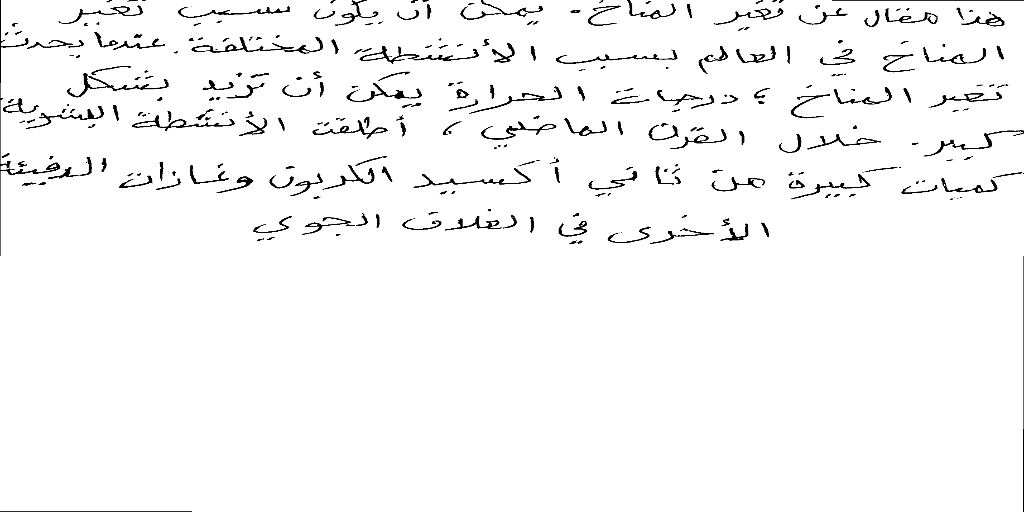 هذا مقال عن تغير المناخ. يمكن أن يكون سبب تغير
المناخ في العالم بسبب الأنشطة المختلفة. عندما يحدث
تغير المناخ ؛ درجات الحرارة يمكن أن تزيد بشكل
كبير. خلال القرن الماضي ، أطلقت الأنشطة البشرية
كميات كبيرة من ثاني أكسيد الكربون وغازات الدفيئة
الأخرى في الغلاف الجوي